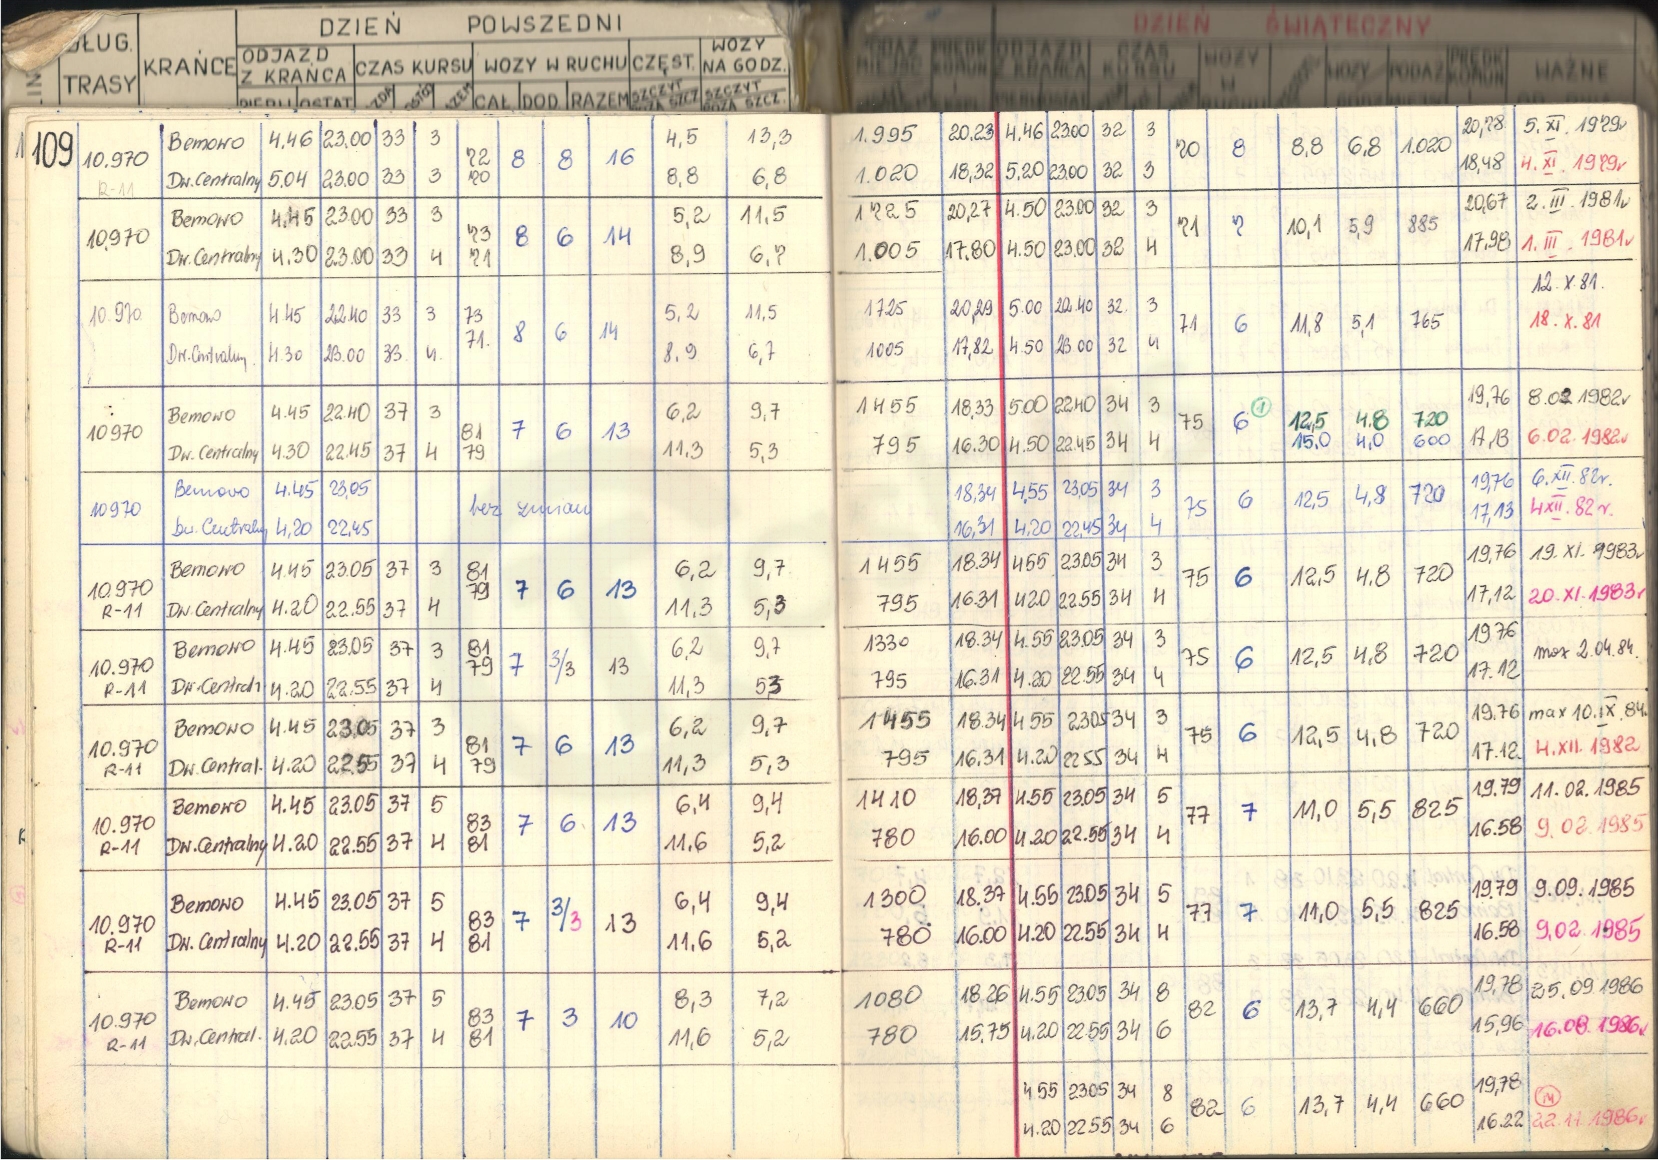 DZIEŃ POWSZEDNI
DZIEŃ ŚWIĄTECZNY
DŁUG. TRASY KRAŃCE ODJAZD Z KRAŃCA CZAS KURSU WOZY W RUCHU CZĘST. WOZY NA GODZ.
CAŁ DOD. RAZEM SZCZYT SZCZYT
WAŻNE
109
Bemowo 4.46 23.00 33 3 4,5 13,3 1.995 20,23 4.46 23.00 32 3 20,78 5. XI. 1979r
10.970 72 8 8 16 70 8 8,8 6,8 1.020
R-11 Dw. Centralny 5.04 23.00 33 3 70 8,8 6,8 1.020 18,32 5.20 23.00 32 3 18,48 4. XI. 1979r
Bemowo 4.45 23.00 33 3 5,2 11,5 1725 20,27 4.50 23.00 32 3 20,67 2. III. 1981r
10.970 73 8 6 14 71 7 10,1 5,9 885
Dw. Centralny 4.30 23.00 33 4 71 8,9 6,7 1.005 17.80 4.50 23.00 32 4 17,98 1. III. 1981r
12. X. 81.
10.970 Bemowo 4.45 22.40 33 3 73 5,2 11,5 1725 20,29 5.00 22.40 32 3
71. 8 6 14 71 6 11,8 5,1 765 18. X. 81
Dw. Centralny 4.30 23.00 33 4 8,9 6,7 1005 17,82 4.50 23.00 32 4
Bemowo 4.45 22.40 37 3 6,2 9,7 1455 18,33 5.00 22.40 34 3 19,76 8.02 1982r
10970 81 7 6 13 75 6 1 12,5 4,8 720
Dw. Centralny 4.30 22.45 37 4 79 11,3 5,3 795 16.30 4.50 22.45 34 4 15,0 4,0 600 17,13 6.02. 1982r
Bemowo 4.45 23.05 18,34 4,55 23.05 34 3 19,76 6. XII. 82r.
10970 bez zmian 75 6 12,5 4,8 720
Dw. Centralny 4,20 22,45 16,31 4.20 22,45 34 4 17,13 4 XII. 82 r.
Bemowo 4.45 23.05 37 3 81 6,2 9,7 1455 18.34 4.55 23.05 34 3 19,76 19. XI. 1983r
10.970 79 7 6 13 75 6 12,5 4,8 720
R-11 Dw. Centralny 4.20 22.55 37 4 11,3 5,3 795 16.31 4.20 22.55 34 4 17,12 20. XI. 1983r
Bemowo 4.45 23.05 37 3 81 6,2 9,7 1330 18.34 4.55 23.05 34 3 19.76
10.970 79 7 3/3 13 75 6 12,5 4,8 720 max 2.04.84.
R-11 Dw. Centraln 4.20 22.55 37 4 11,3 5,3 795 16.31 4.20 22.55 34 4 17.12
Bemowo 4.45 23.05 37 3 6,2 9,7 1455 18.34 4.55 23.05 34 3 19.76 max 10. IX. 84.
10.970 81 7 6 13 75 6 12,5 4,8 720
R-11 Dw. Central. 4.20 22.55 37 4 79 11,3 5,3 795 16.31 4.20 22.55 34 4 17.12 4. XII. 1982
Bemowo 4.45 23.05 37 5 6,4 9,4 1410 18,37 4.55 23.05 34 5 19.79 11.02.1985
10.970 83 7 6 13 77 7 11,0 5,5 825
R-11 Dw. Centralny 4.20 22.55 37 4 81 11,6 5,2 780 16.00 4.20 22.55 34 4 16.58 9.02.1985
Bemowo 4.45 23.05 37 5 6,4 9,4 1300 18.37 4.55 23.05 34 5 19,79 9.09.1985
10.970 83 7 3/3 13 77 7 11,0 5,5 825
R-11 Dw. Centralny 4.20 22.55 37 4 81 11,6 5,2 780 16.00 4.20 22.55 34 4 16.58 9.02.1985
Bemowo 4.45 23.05 37 5 8,3 7,2 1080 18.26 4.55 23.05 34 8 19,78 25.09.1986
10.970 83 7 3 10 82 6 13,7 4,4 660
R-11 Dw. Central. 4.20 22.55 37 4 81 11,6 5,2 780 15.75 4.20 22.55 34 6 15,96 16.08.1986r
4.55 23.05 34 8 19,78
82 6 13,7 4,4 660
4.20 22.55 34 6 16.22 22.11.1986r